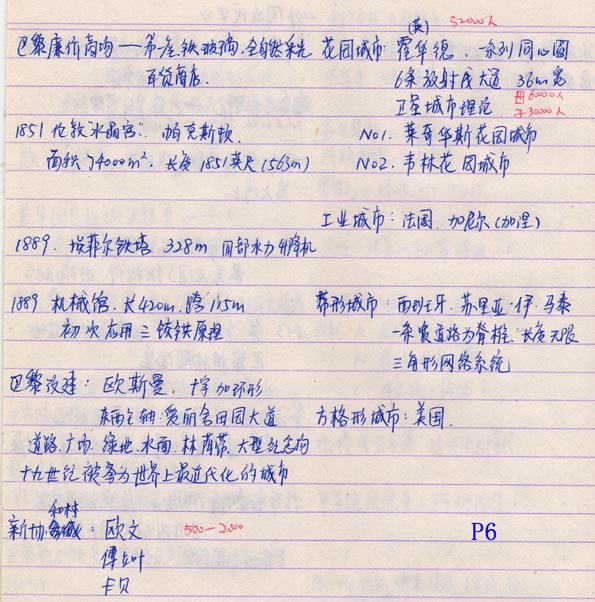 巴黎廉价商场——第一座铁玻璃,全自然采光
百货商店.
1851 伦敦"水晶宫". 帕克斯顿.
面积 74000m². 长度 1851英尺(563m)
1889. 埃菲尔铁塔 328m 内部水力升降机
1889 机械馆. 长420m. 跨115m
初次应用三铰拱原理
巴黎改建: 欧斯曼. 十字加环形
东西主轴:爱丽舍田园大道
道路.广场.绿地.水面.林荫带.大型纪念
十九世纪被誉为世界上最近代化的城市
新协和村: 欧文 500—2000
傅立叶
卡贝
(英) 32000人
花园城市: 霍华德. 一系列同心圆
6条放射大道 36m宽
卫星城市理论 母60000人
子30000人
No1. 莱奇华斯花园城市
No2. 韦林花园城市
工业城市: 法国. 加尼尔(加涅)
带形城市: 西班牙. 苏里亚·伊·马泰
一条宽道路为脊椎. 长度无限
三角形网络系统
方格形城市:美国.
P6